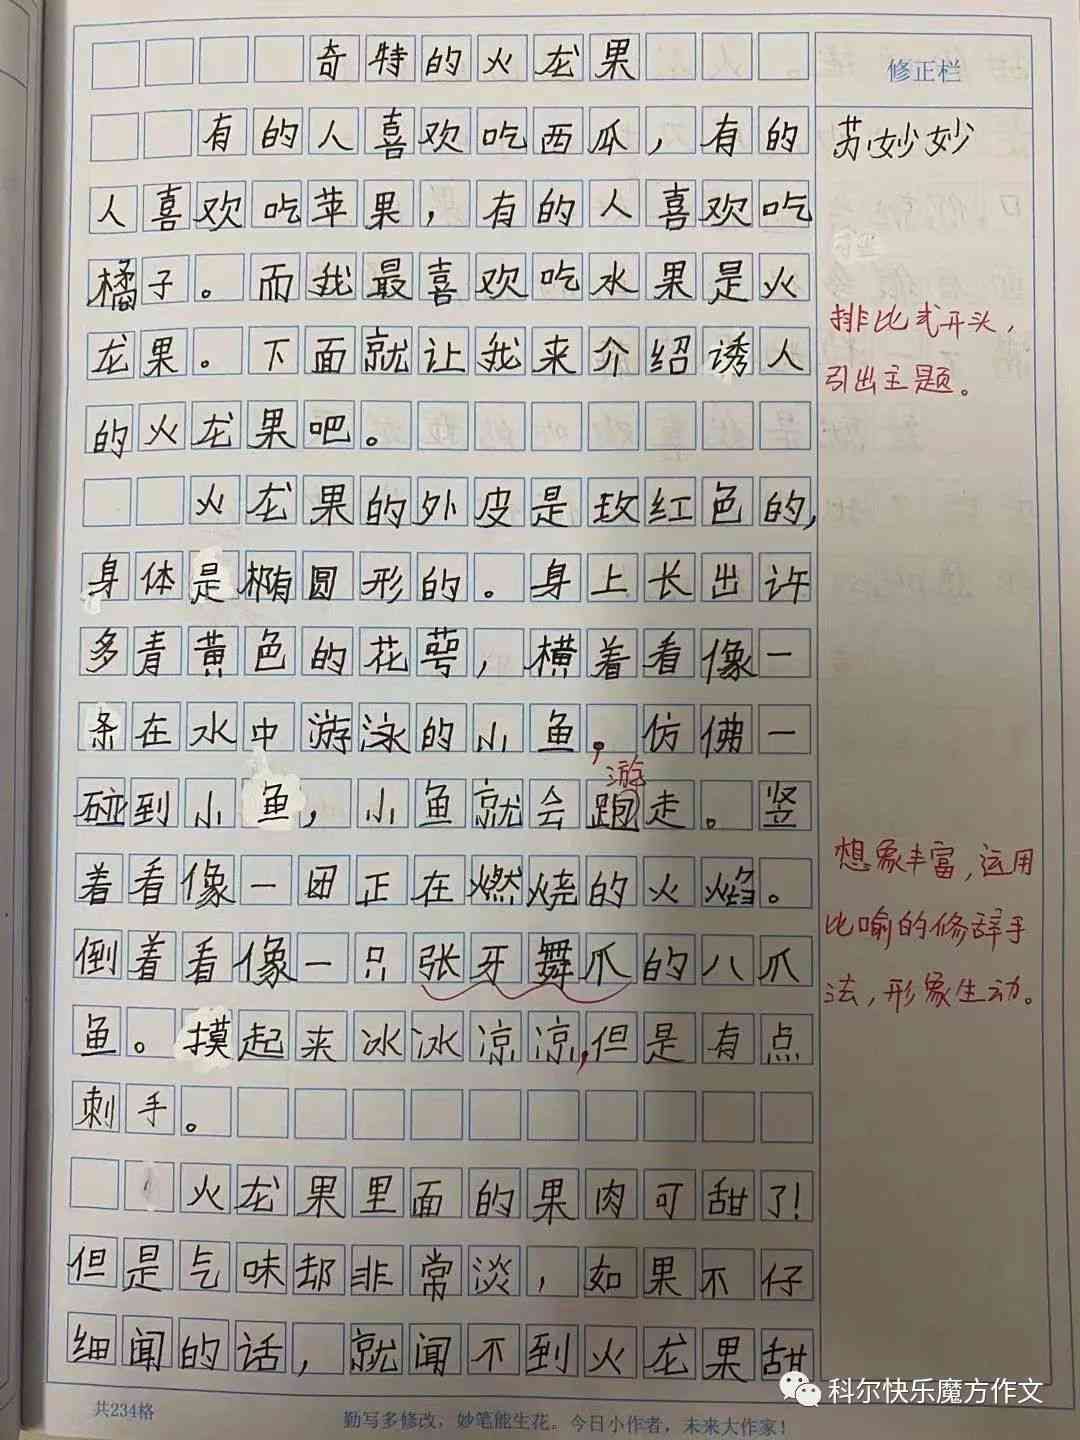 奇特的火龙果
修正栏
有的人喜欢吃西瓜，有的
苏妙妙
人喜欢吃苹果，有的人喜欢吃
橘子。而我最喜欢吃水果是火
龙果。下面就让我来介绍诱人
的火龙果吧。
排比式开头，
引出主题。
火龙果的外皮是玫红色的，
身体是椭圆形的。身上长出许
多青黄色的花萼，横着看像一
条在水中游泳的小鱼，仿佛一
游
碰到小鱼，小鱼就会跑走。竖
着看像一团正在燃烧的火焰。
倒着看像一只张牙舞爪的八爪
鱼。摸起来冰冰凉凉，但是有点
刺手。
想象丰富，运用
比喻的修辞手
法，形象生动。
火龙果里面的果肉可甜了！
但是气味却非常淡，如果不仔
细闻的话，就闻不到火龙果甜
科尔快乐魔方作文
共234格
勤写多修改，妙笔能生花。今日小作者，未来大作家！